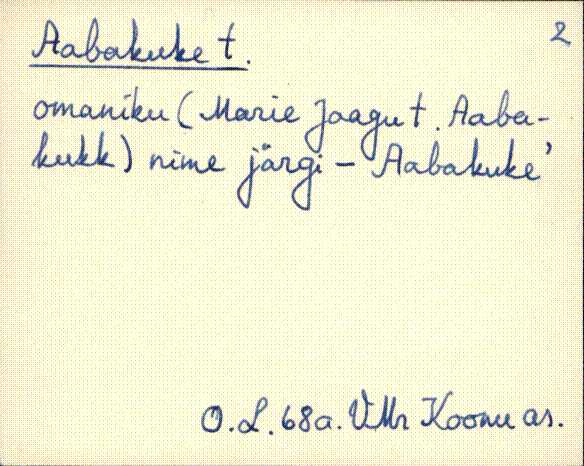 2
Aabakuke t.
omaniku (Marie Jaagu t. Aaba-
kukk) nime järgi – Aabakuke’
O.L. 68a. VMr Koonu as.